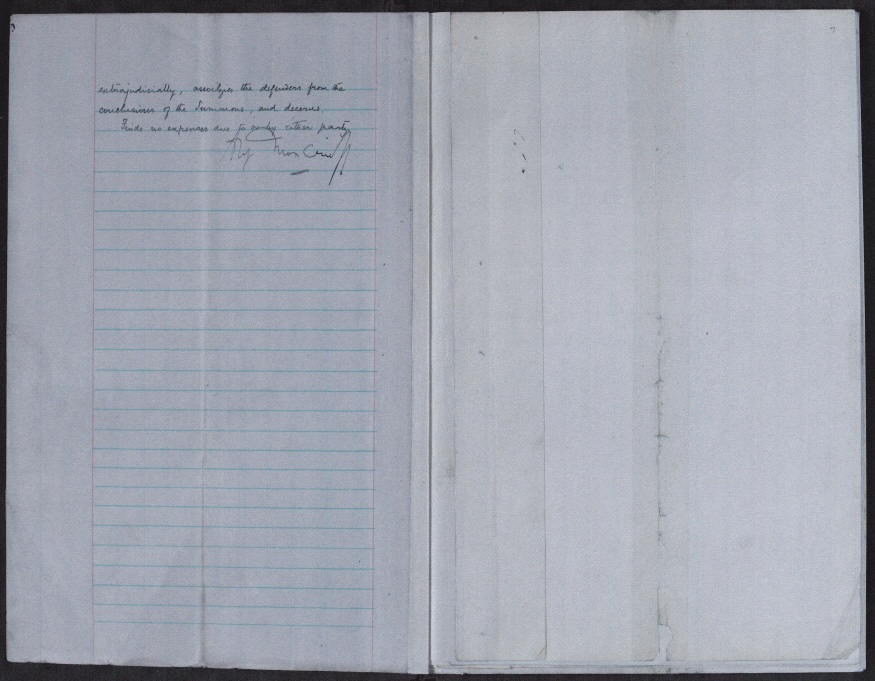 extrajudicially, assoilzies the defenders from the
conclusions of the Summons, and decerns.
Finds no expenses due to either party